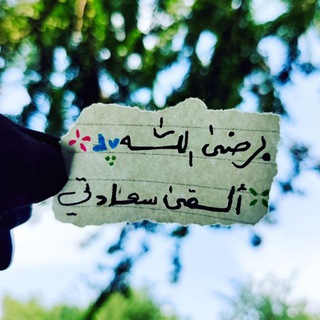 برضى الله
ألقى سعادتي